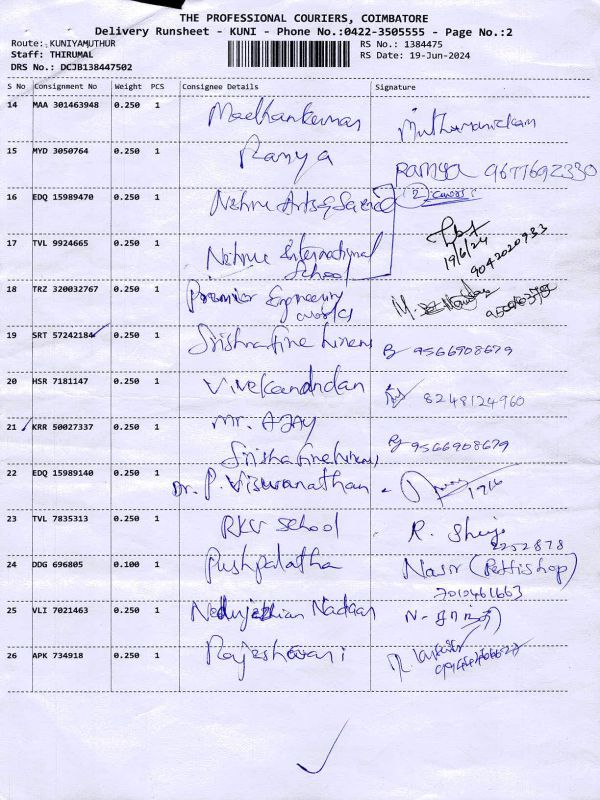 THE PROFESSIONAL COURIERS, COIMBATORE
Delivery Runsheet - KUNI - Phone No.:0422-3505555 - Page No.:2
Route: KUNIYAMUTHUR RS No.: 1384475
Staff: THIRUMAL RS Date: 19-Jun-2024
DRS No.: DCJB138447502
S No Consignment No Weight PCS Consignee Details Signature
14 MAA 301463948 0.250 1 Madhankumar Muthumanickam
15 MYD 3050764 0.250 1 Ramya Ramya 9677692330
16 EDQ 15989470 0.250 1 Nehru Arts & Science (2)
17 TVL 9924665 0.250 1 Nehru International School 19/6/24 9042020933
18 TRZ 320032767 0.250 1 Premier Engineering works M.
19 SRT 57242184 0.250 1 Srisha fine linens 9566908679
20 HSR 7181147 0.250 1 Vivekanandan 8248124960
21 KRR 50027337 0.250 1 Mr. AJAY
Srisha fine linens 9566908679
22 EDQ 15989140 0.250 1 Dr. P. Viswanathan
23 TVL 7835313 0.250 1 RKV School R.
24 DDG 696805 0.100 1 Pushpalatha Nasir (Pettishop)
7010461663
25 VLI 7021463 0.250 1 Nadaan N-
26 APK 734918 0.250 1 Rajeshwari